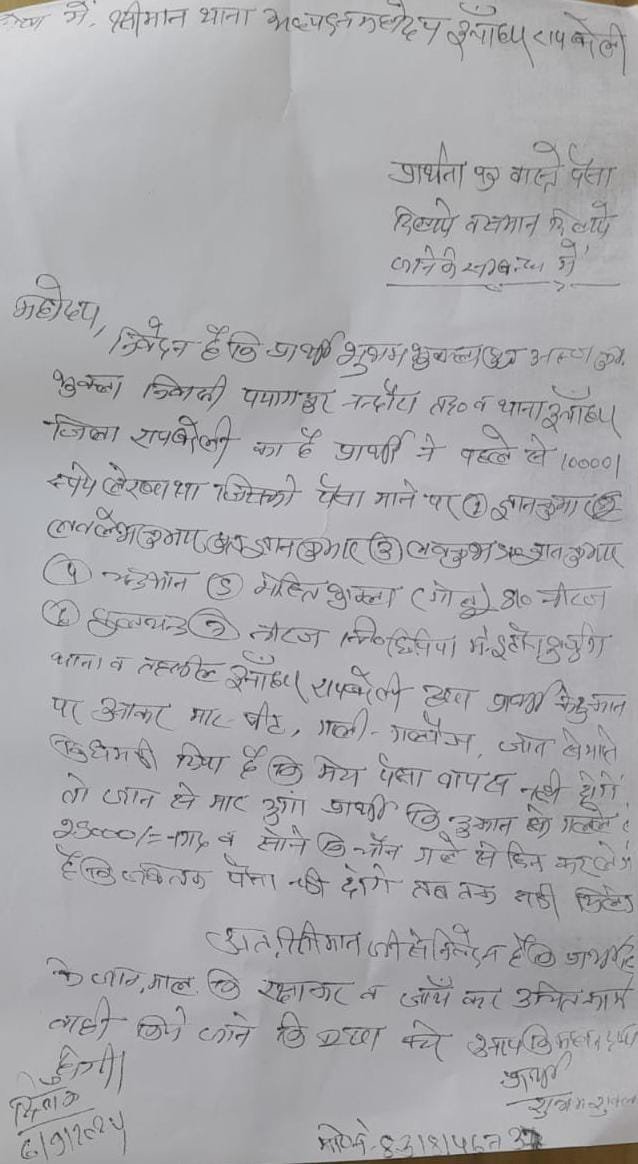 में, श्रीमान थाना अध्यक्ष महोदय ऊँचाहार रायबरेली
प्रार्थना पत्र वास्ते पैसा
दिलाये व समान दिलाये
जाने के सम्बन्ध में
महोदय,
निवेदन है कि प्रार्थी शुभम शुक्ला पुत्र
शुक्ला निवासी व थाना ऊँचाहार
जिला रायबरेली का है प्रार्थी ने पहले से 10000/
रुपये ले रखा था जिसको पैसा माने पर ① ज्ञानकुमार ②
लवलेश कुमार पुत्र ज्ञान कुमार ③ लवकुश पुत्र ज्ञान कुमार
④ ⑤ मोहित शुक्ला (गोलू) S/o नीरज
⑥ ⑦ नीरज नि०
थाना व तहसील ऊँचाहार रायबरेली द्वारा प्रार्थी के दुकान
पर आकर मार-पीट, गाली-गलौज, जान से मारने
कि धमकी दिया है कि मेरा पैसा वापस नही दोगे
तो जान से मार दुगां प्रार्थी कि दुकान के गल्ले से
25000/= नगद व सोने कि चैन गले से छिन कर ले गये
है कि जबतक पैसा नही दोगे तब तक नही मिलेगा
अतः श्रीमान जी से निवेदन है कि प्रार्थी
के जान, माल कि रक्षा कर व जाँच कर उचित कार्य
वाही किये जाने कि कृपा करे आपकि महान दया
होगी।
प्रार्थी
शुभम शुक्ला
दिनांक